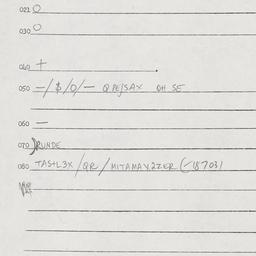 020 O
030 O
040 +
050 -/$/0/- QPE/SAX OH SE
060 -
070 )RUNDE
080 TASTL3X/QR/MITAMAV2ZER